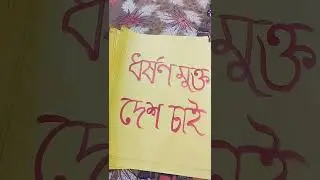 ধর্ষণ মুক্ত
দেশ চাই